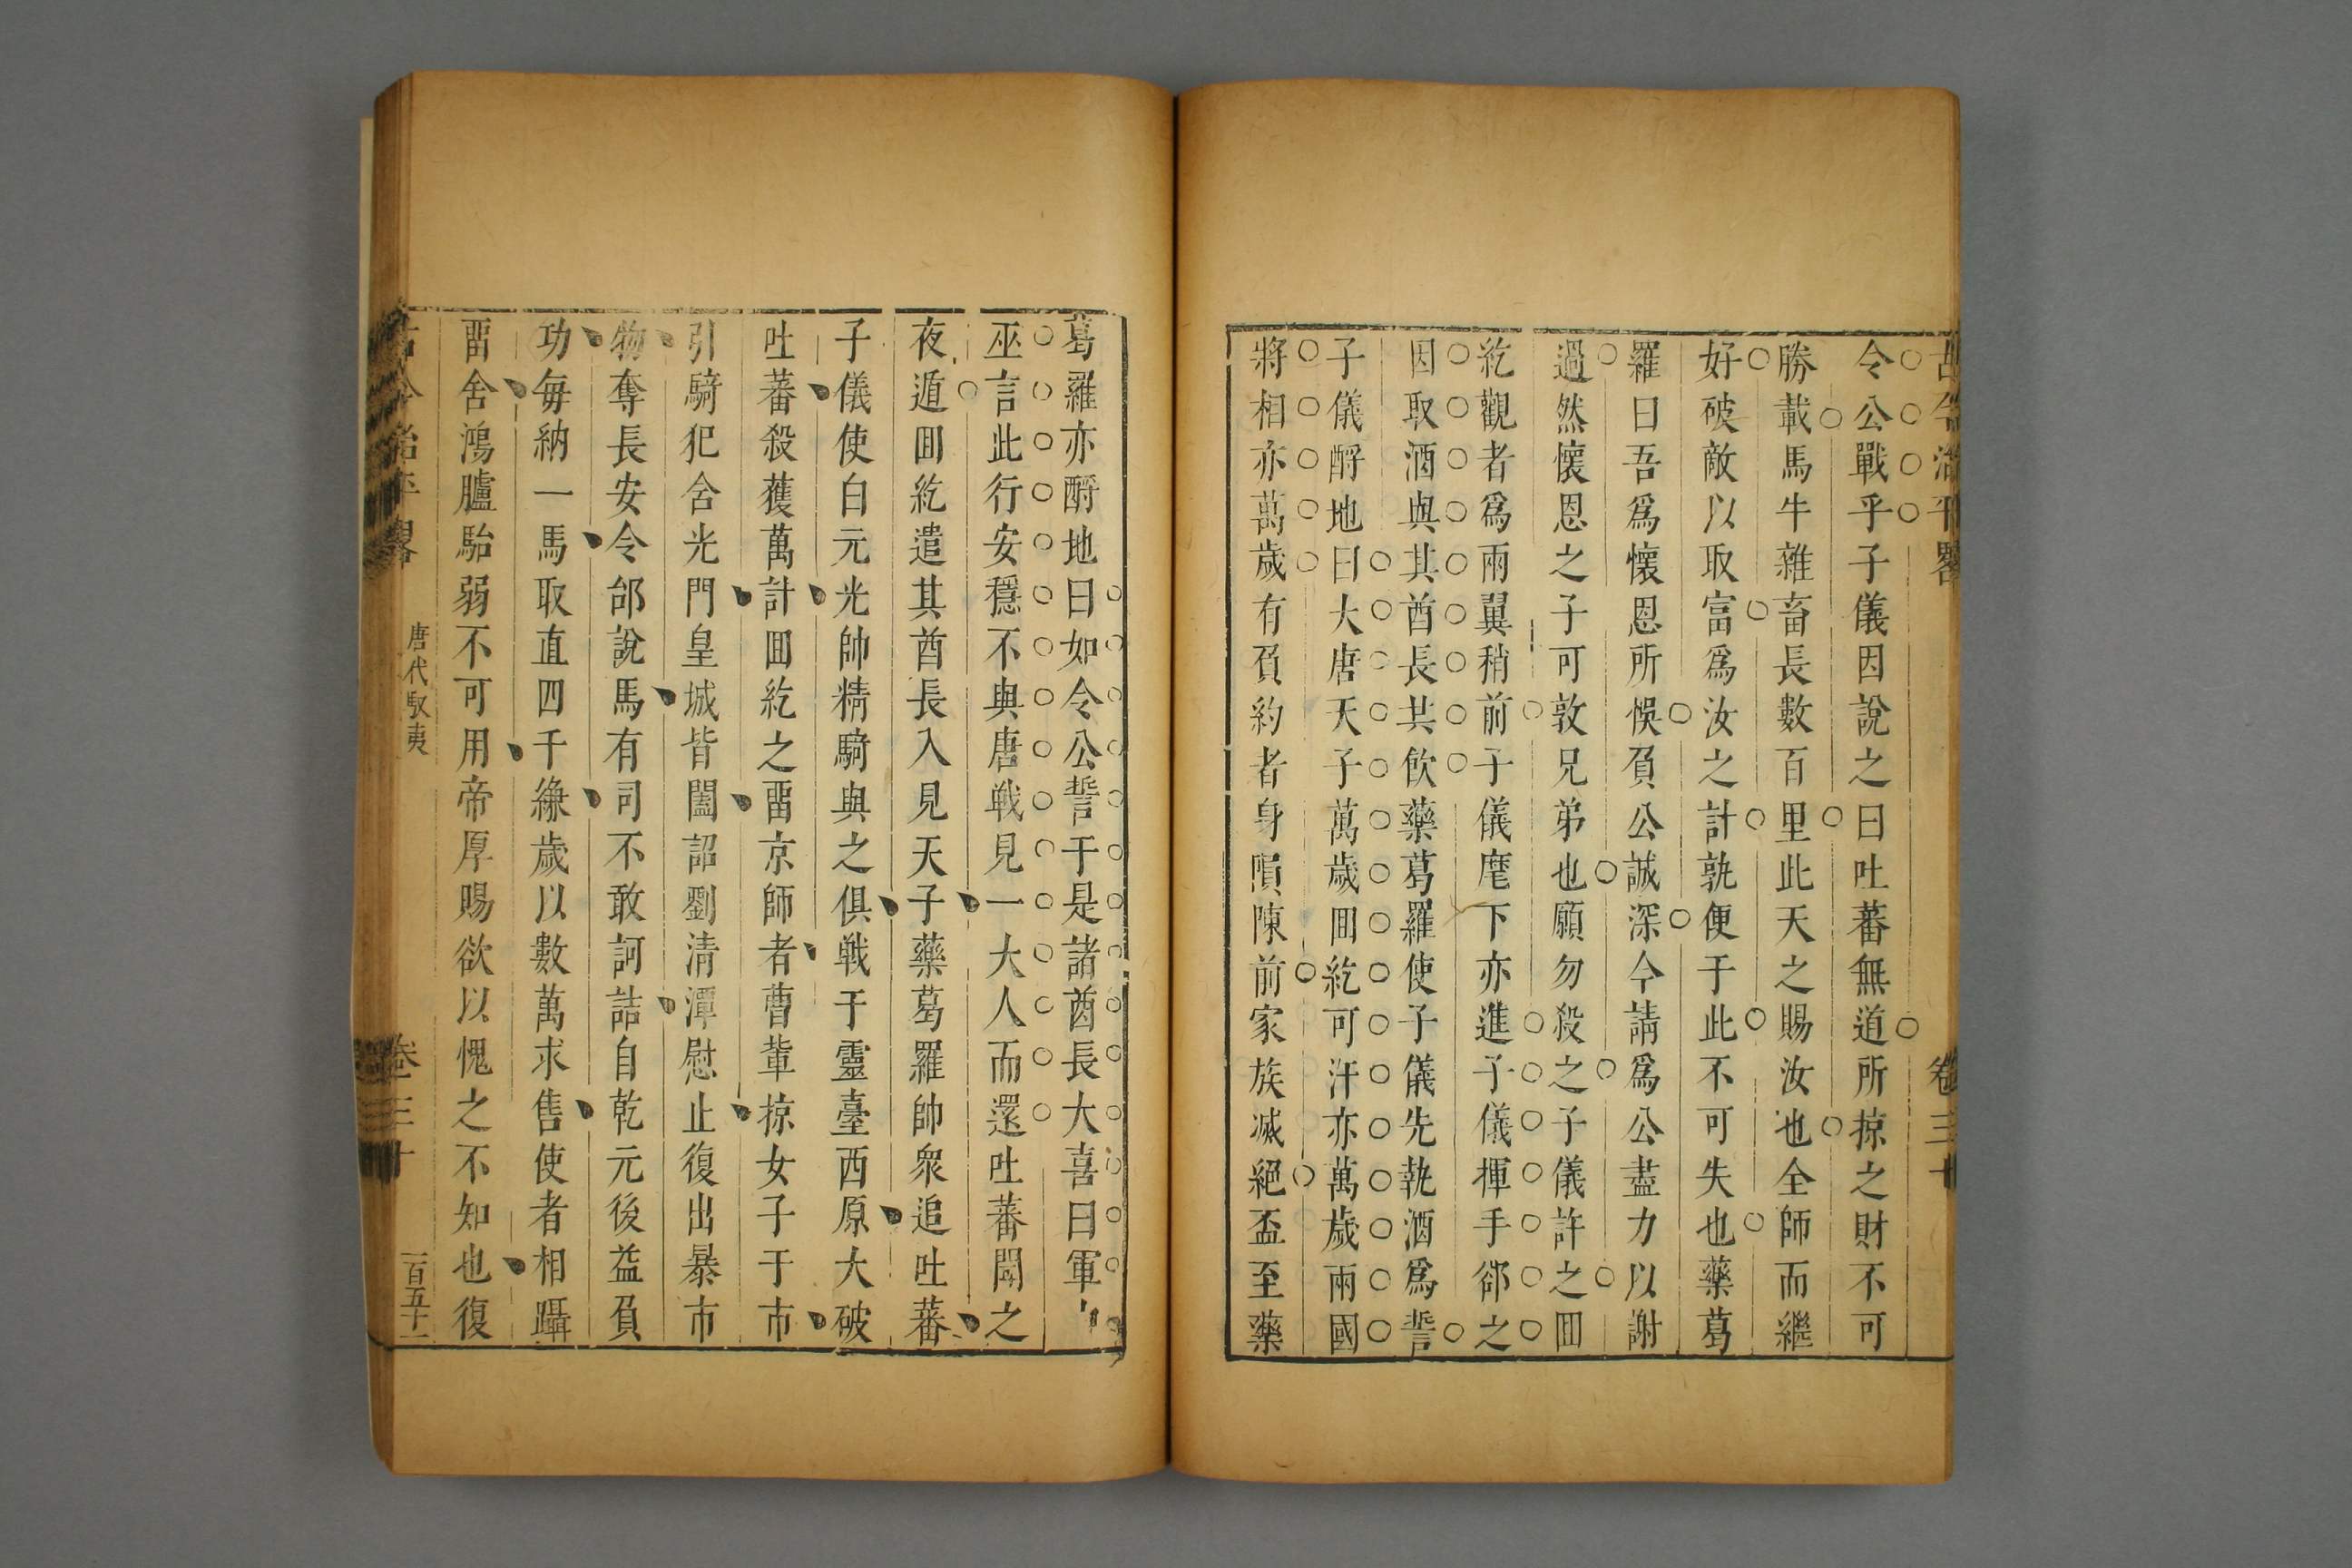 古今治平畧 卷三十
令公戰乎子儀因說之曰吐蕃無道所掠之財不可
勝載馬牛雜畜長數百里此天之賜汝也全師而繼
好破敵以取富爲汝之計孰便于此不可失也藥葛
羅曰吾爲懷恩所悞負公誠深今請爲公盡力以謝
過然懷恩之子可敦兄弟也願勿殺之子儀許之囬
紇觀者爲兩翼稍前子儀麾下亦進子儀揮手郤之
因取酒與其酋長共飲藥葛羅使子儀先執酒爲誓
子儀酹地曰大唐天子萬歲囬紇可汗亦萬歲兩國
將相亦萬歲有負約者身隕陳前家族滅絕盃至藥
葛羅亦酹地曰如令公誓于是諸酋長大喜曰軍中
巫言此行安穩不與唐戰見一大人而還吐蕃聞之
夜遁囬紇遣其酋長入見天子藥葛羅帥衆追吐蕃
子儀使白元光帥精騎與之俱戰于靈臺西原大破
吐蕃殺獲萬計囬紇之畱京師者曹輩掠女子于市
引騎犯含光門皇城皆闔詔劉清潭慰止復出暴市
物奪長安令邰說馬有司不敢訶詰自乾元後益負
功每納一馬取直四千縑歲以數萬求售使者相躡
畱舍鴻臚駘弱不可用帝厚賜欲以愧之不知也復
古今治平畧 唐代馭夷 卷三十 一百五十二